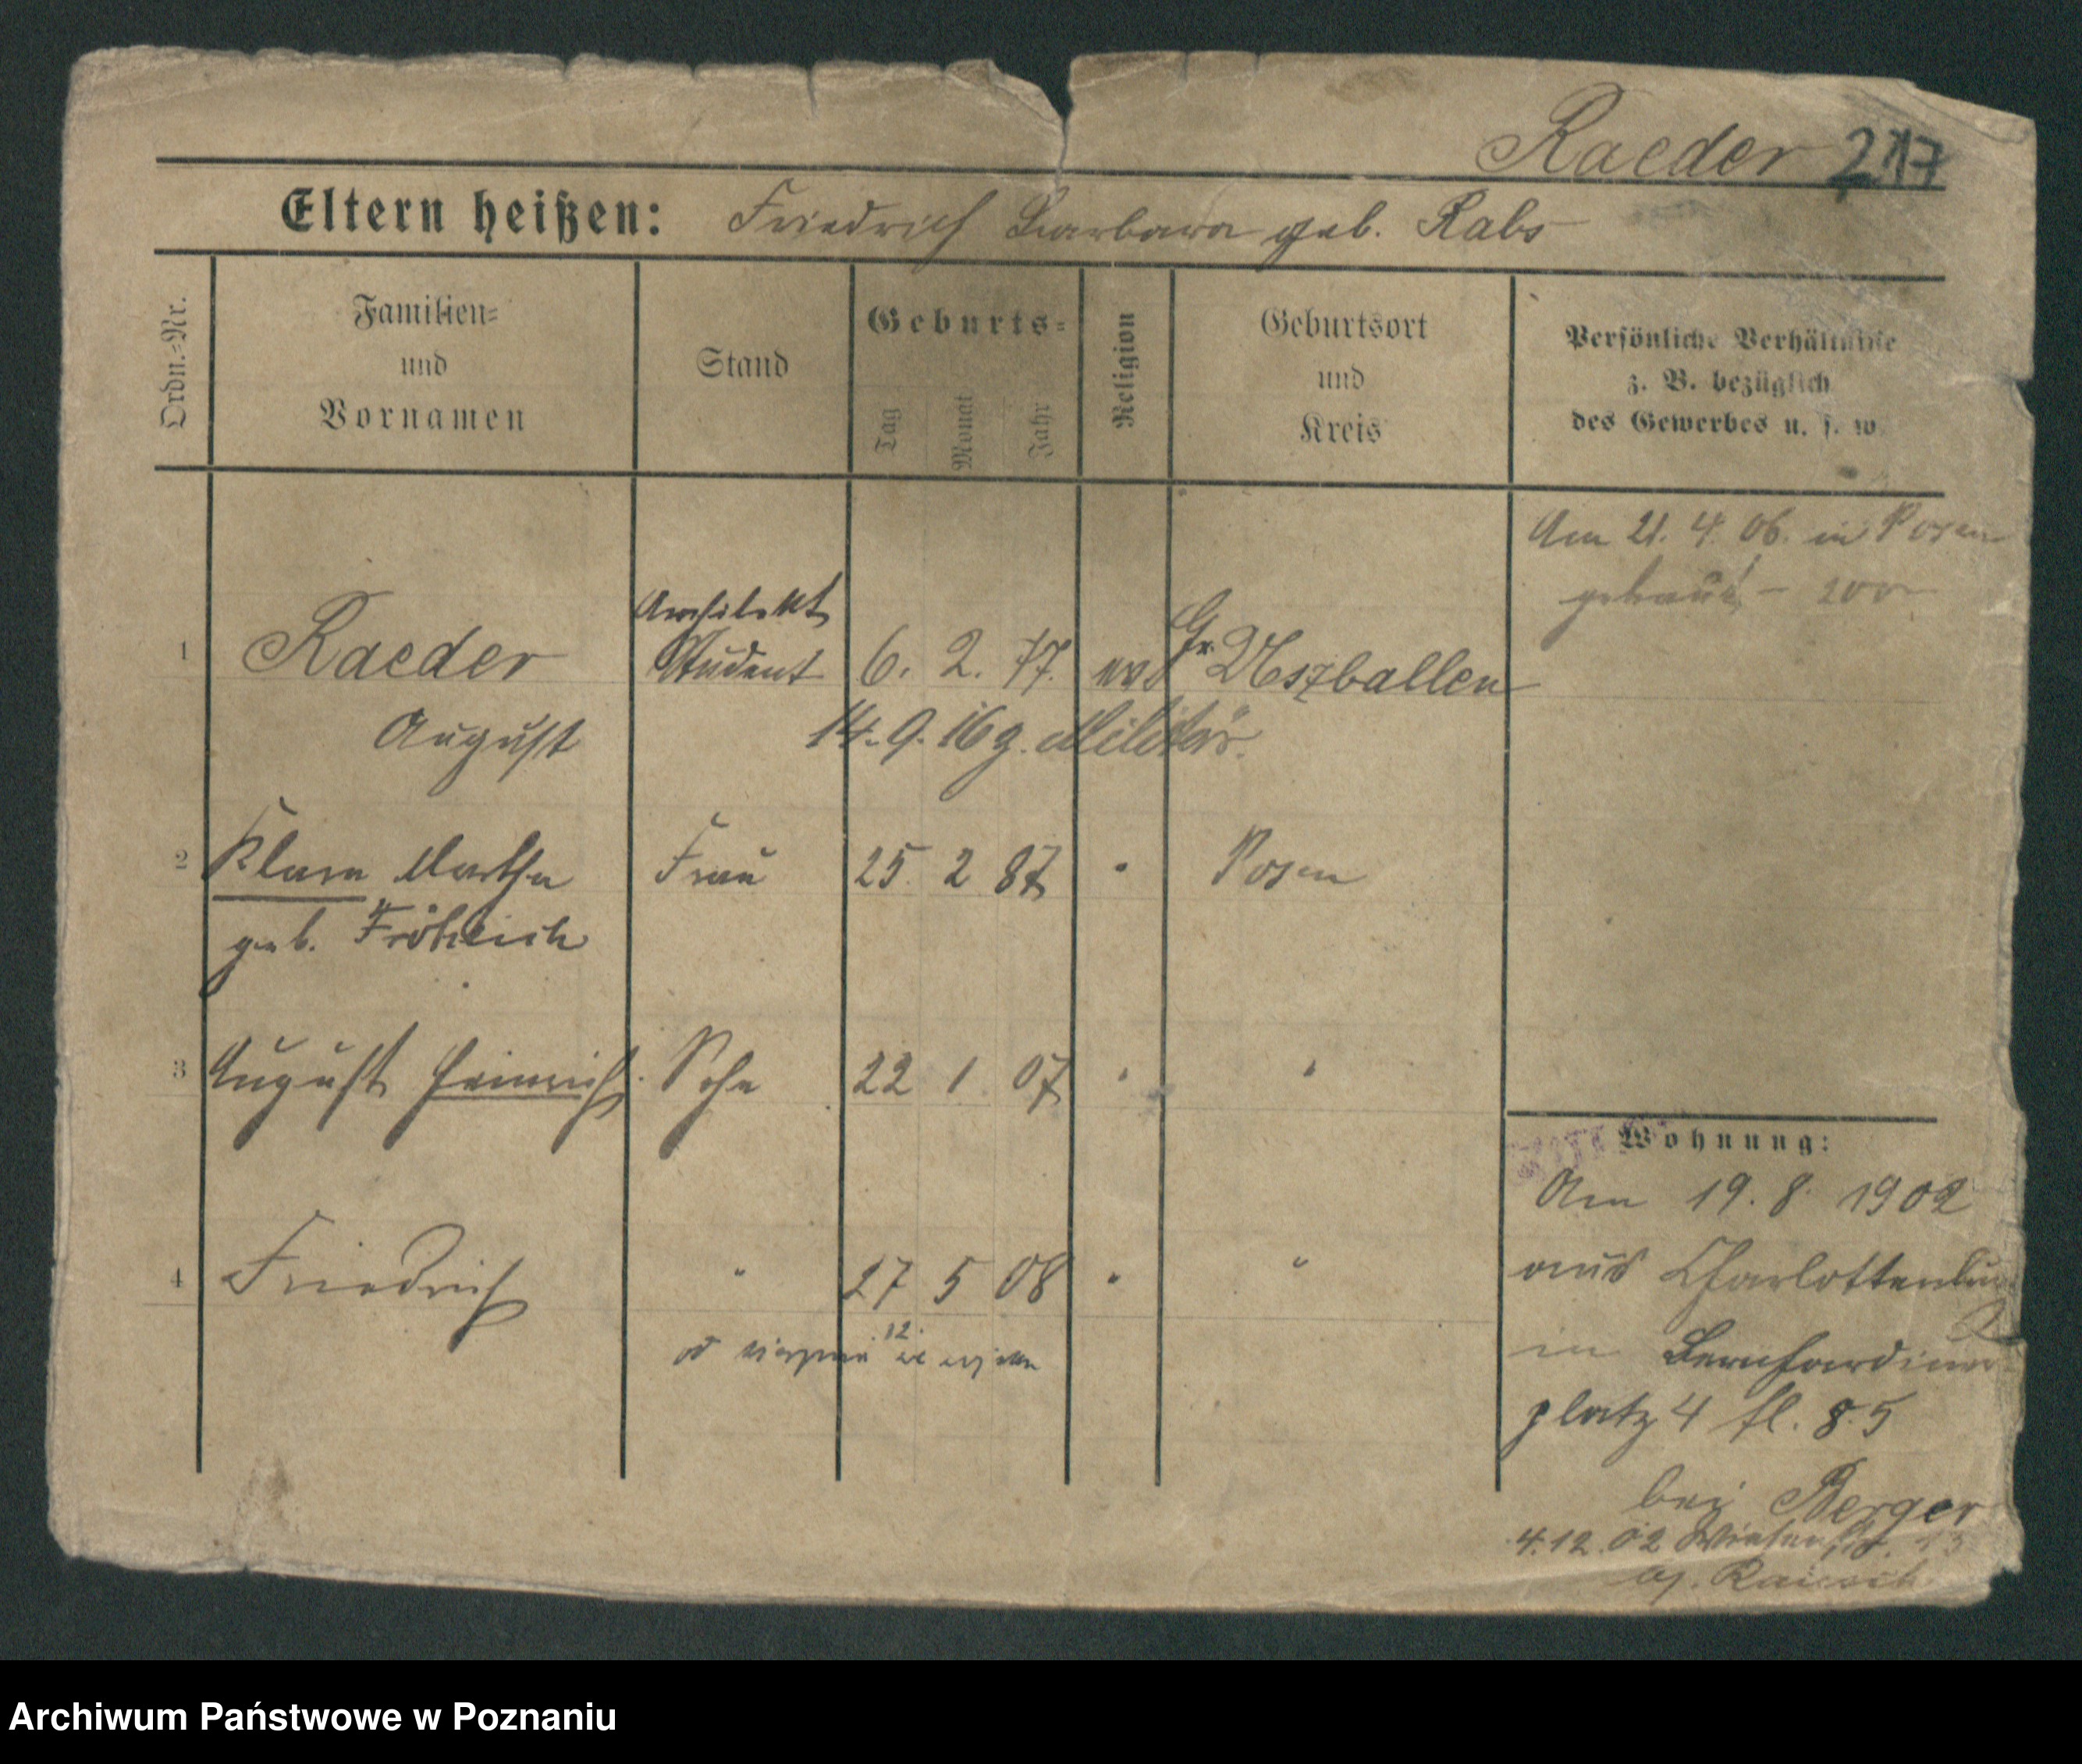 Raeder 217
Eltern heißen: Friedrich Barbara geb. Rabs
Ordn.-Nr.
Familien-
und
Vornamen
Stand
Geburts-
Tag
Monat
Jahr
Religion
Geburtsort
und
Kreis
Persönliche Verhältnisse
z. B. bezüglich
des Gewerbes u. s. w.
Am 21. 4. 06. in Posen
getraut
Architekt
1 Raeder Student 6. 2. 77. ev Gr. Uszballen
August 14. 9. 16 z. Militär.
2 Klara Martha Frau 25. 2 87 " Posen
geb. Fröhlich
3 August Heinrich Sohn 22 1 07 " "
4 Friedrich " 27 5 08 " "
12.
od
Wohnung:
Am 19. 8. 1902
aus Charlottenburg
in Bernhardiner
platz 4 fl. 85
bei Berger
4.12.02 Wiesenstr.
Archiwum Państwowe w Poznaniu